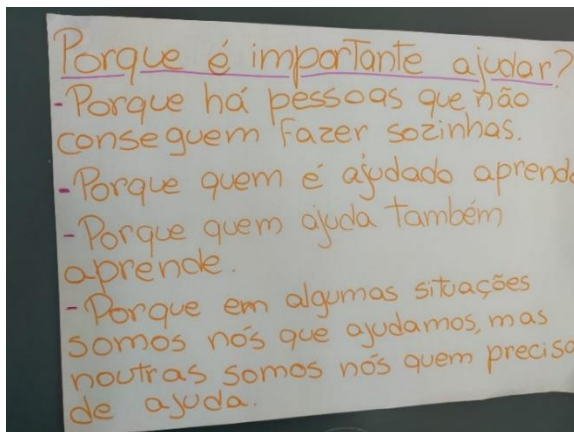 Porque é importante ajudar?
- Porque há pessoas que não
conseguem fazer sozinhas.
- Porque quem é ajudado aprende
- Porque quem ajuda também
aprende.
- Porque em algumas situações
somos nós que ajudamos, mas
noutras somos nós quem precisa
de ajuda.